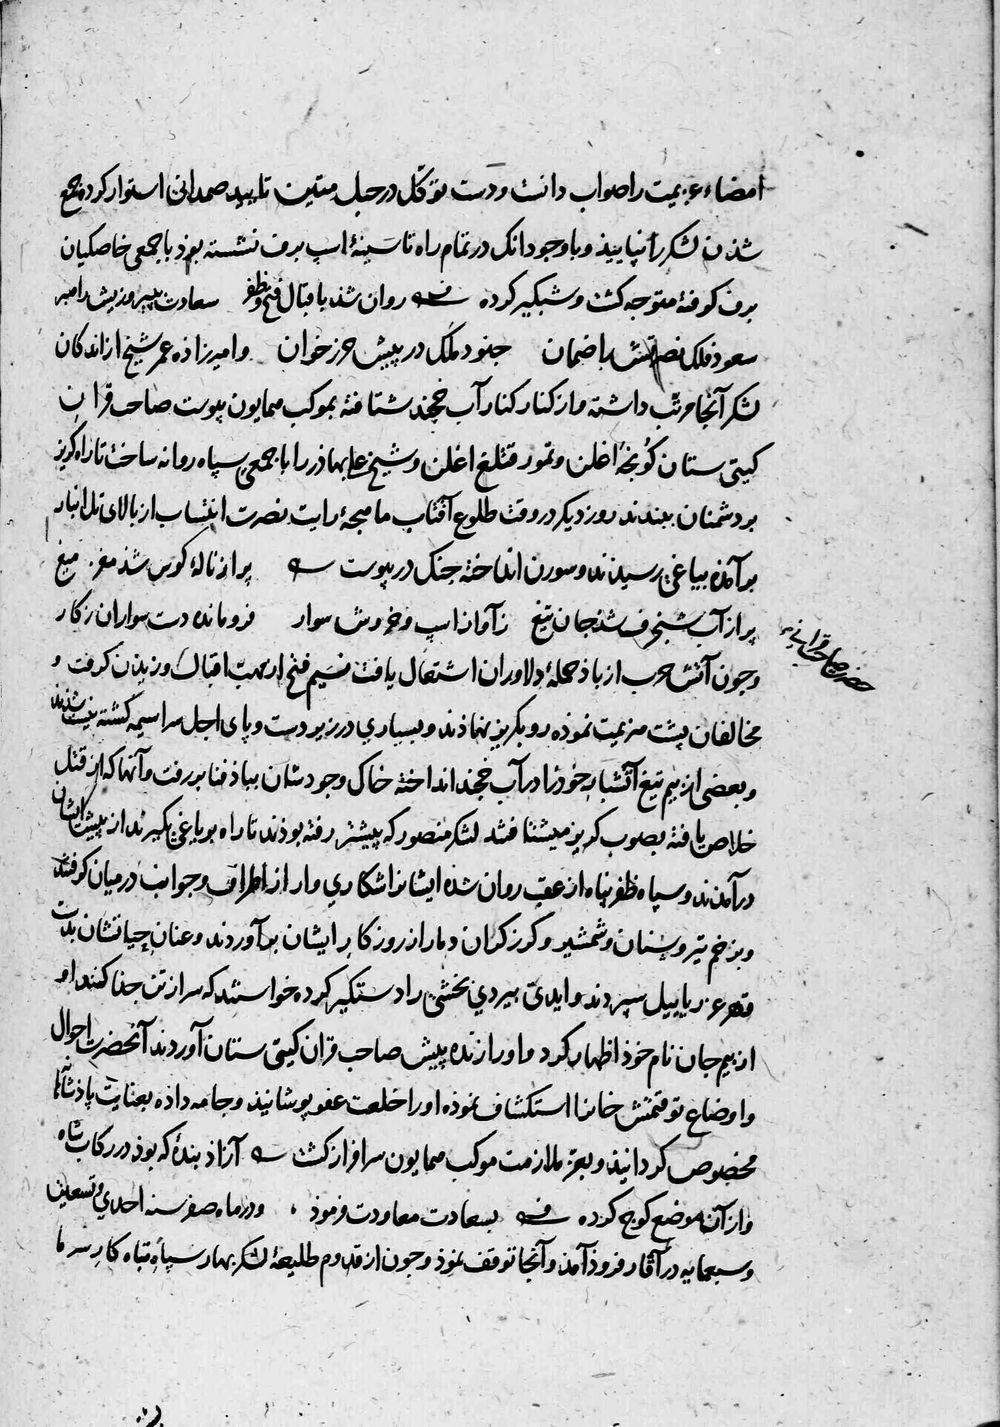 امضاء عزیمت را صواب دانست و دست توکّل در حبل متین تایید صمدانی استوار کرد و جمع
شدن لشکر را نپایید و با وجود آنک در تمام راه تا سینهٔ اسب برف نشسته بوذ با جمعی خاصکیان
برف کوفته متوجه کشت و شبکیر کرده روان شد باقبال فتح و ظفر سعادت پس و پیش رامبر
سعود فلک نصرتش با ضمان جنود ملک در پیش حرزخوان و امیرزاده عمر شیخ از اندکان
لشکر آنجا مرتب داشته و از کنار کنار آب خجند شتافته بموکب همایون پیوست صاحب قران
کیتی ستان کونجه اغلن و تمور قتلغ اغلن و شیخ علی بهاذر را با جمعی سپاه روانه ساخت تا راه کریز
بر دشمنان ببندند روز دیکر در وقت طلوع آفتاب ماهچهٔ رایت نصرت انتساب از بالای تل انبار
بر آمذه بیاغی رسیدند و سورن انداخته جنک در پیوست پر از نالهٔ کوس شذ مغز میغ
پر از آب شنجرف شذ جان تیغ ز آواز اسپ و خروش سوار فرومانده دست سواران ز کار
و چون آتش حرب از باذ حملهٔ دلاوران اشتعال یافت نسیم فتح از مهب اقبال وزیذن کرفت و
مخالفان پشت هزیمت نموده رو بکریز نهاذند و بسیاری در زیر دست و پای اجل سراسیمه کشته نیست شدند
و بعضی از بیم تیغ آتشبار خوذ را در آب خجند انداخته خاک وجودشان بباذ فنا بر رفت و آنها که از قتل
خلاص یافته بصوب کریز میشتافتند لشکر منصور که پیشتر رفته بوذند تا راه بر یاغی بکیرند از پیش ایشان
در آمدند و سپاه ظفر پناه از عقب روان شده ایشان را شکاری وار از اطراف و جوانب در میان کرفتند
و بزخم تیر و سنان و شمشیر و کرز کران دمار از روزکار ایشان بر آوردند و عنان حیاتشان بدست
قهر عزراییل سپردند و ایدی بیردی بخشی را دستکیر کرده خواستند که سر از تن جذا کنند او
از بیم جان نام خوذ اظهار کرد و او را زنده پیش صاحب قران کیتی ستان آوردند آنحضرت احوال
و اوضاع توقتمش خان را استکشاف نموده او را خلعت عفو پوشانیذ و جامه داذه بعنایت پاذشاهانه
مخصوص کردانیذ و بعز ملازمت موکب همایون سرافراز کشت آزاذ بندهٔ که بوذ در رکاب شاه
و از آن موضع کوچ کرده بسعادت معاودت فرموذ و در ماه صفر سنه احدی و تسعین
و سبعمایه در آقار فروذ آمذ و آنجا توقف نموذ و چون از قدوم طلیعهٔ لشکر بهار سپاه تباه کار سرما
حضرت صاحب قرانی